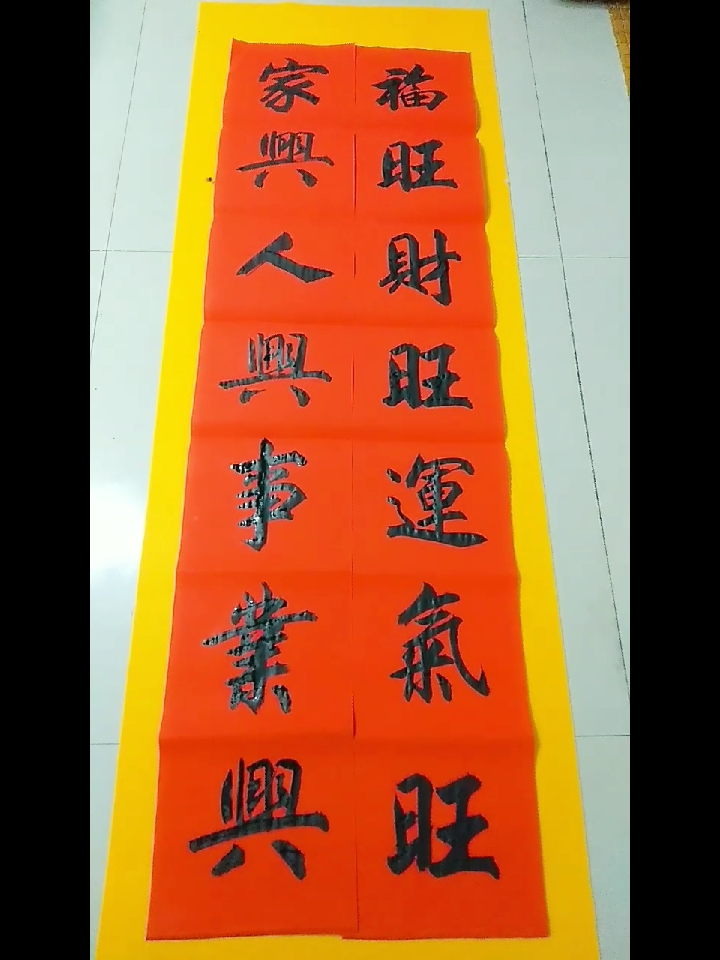 福旺財旺運氣旺
家興人興事業興